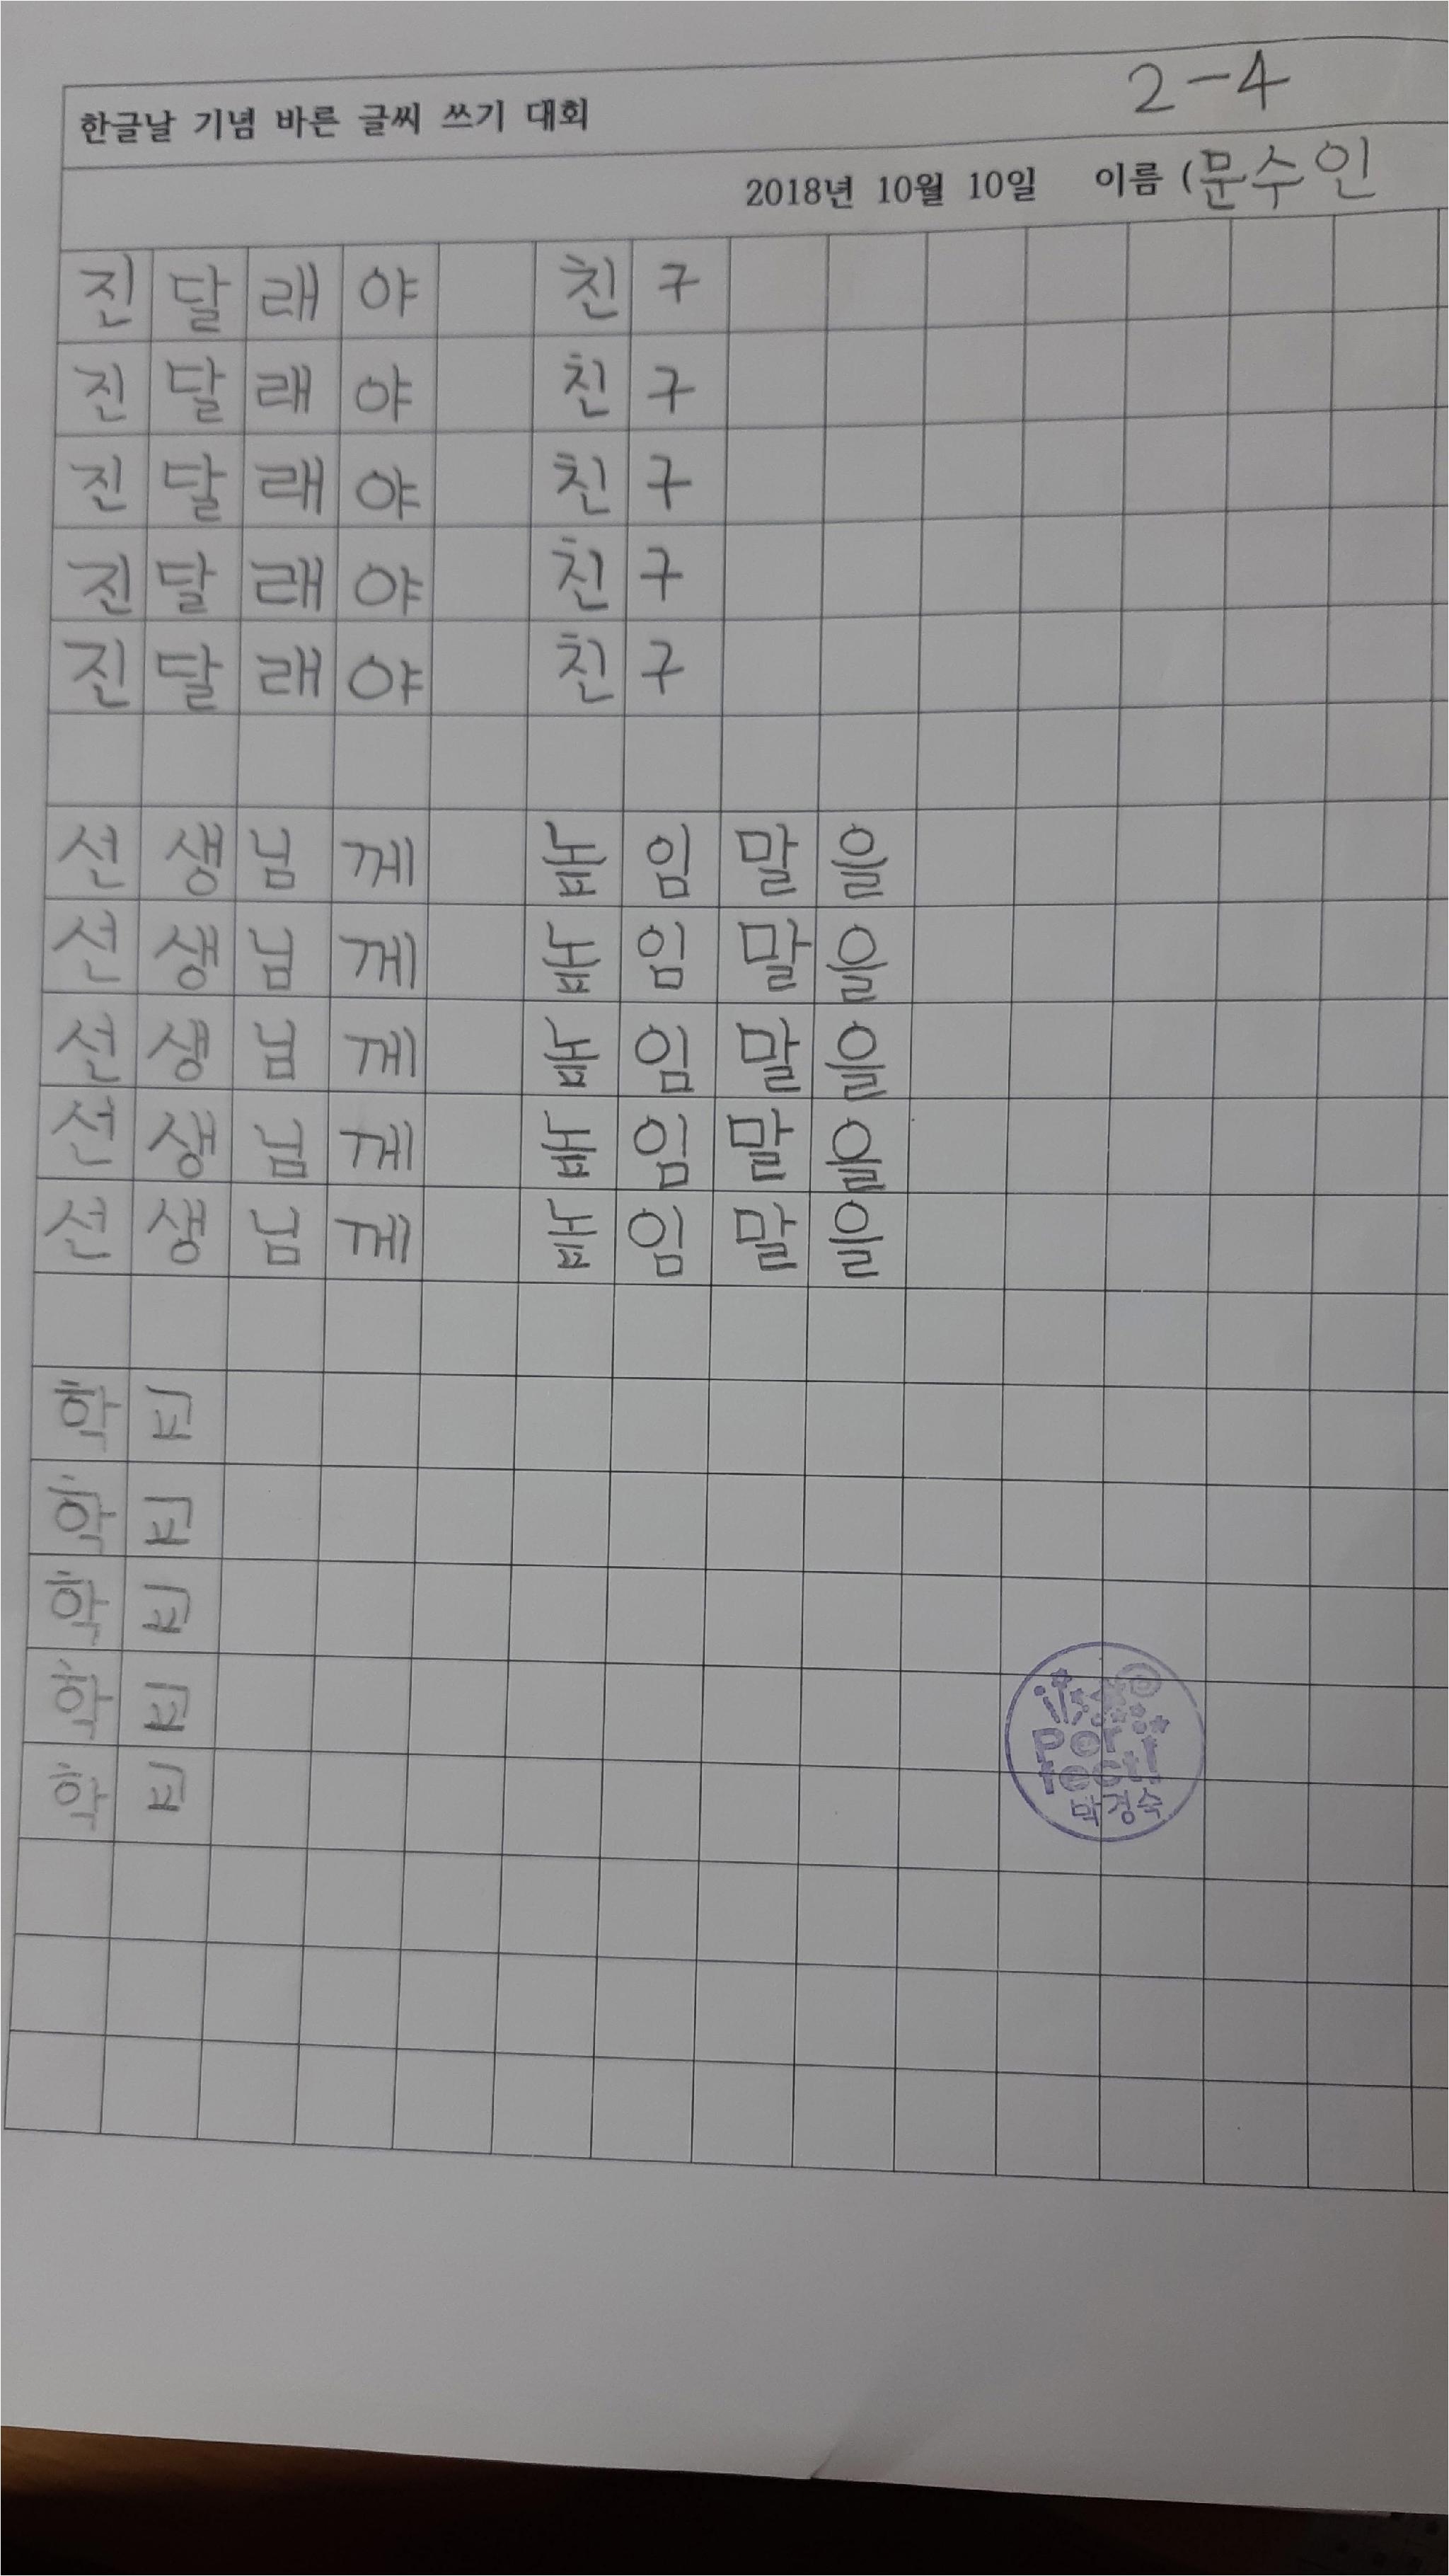 2-4
한글날 기념 바른 글씨 쓰기 대회
2018년 10월 10일 이름 (문수인
진달래야 친구
진달래야 친구
진달래야 친구
진달래야 친구
진달래야 친구
선생님께 높임말을
선생님께 높임말을
선생님께 높임말을
선생님께 높임말을
선생님께 높임말을
학교
학교
학교
학교
학교
Per
fect!
박경숙